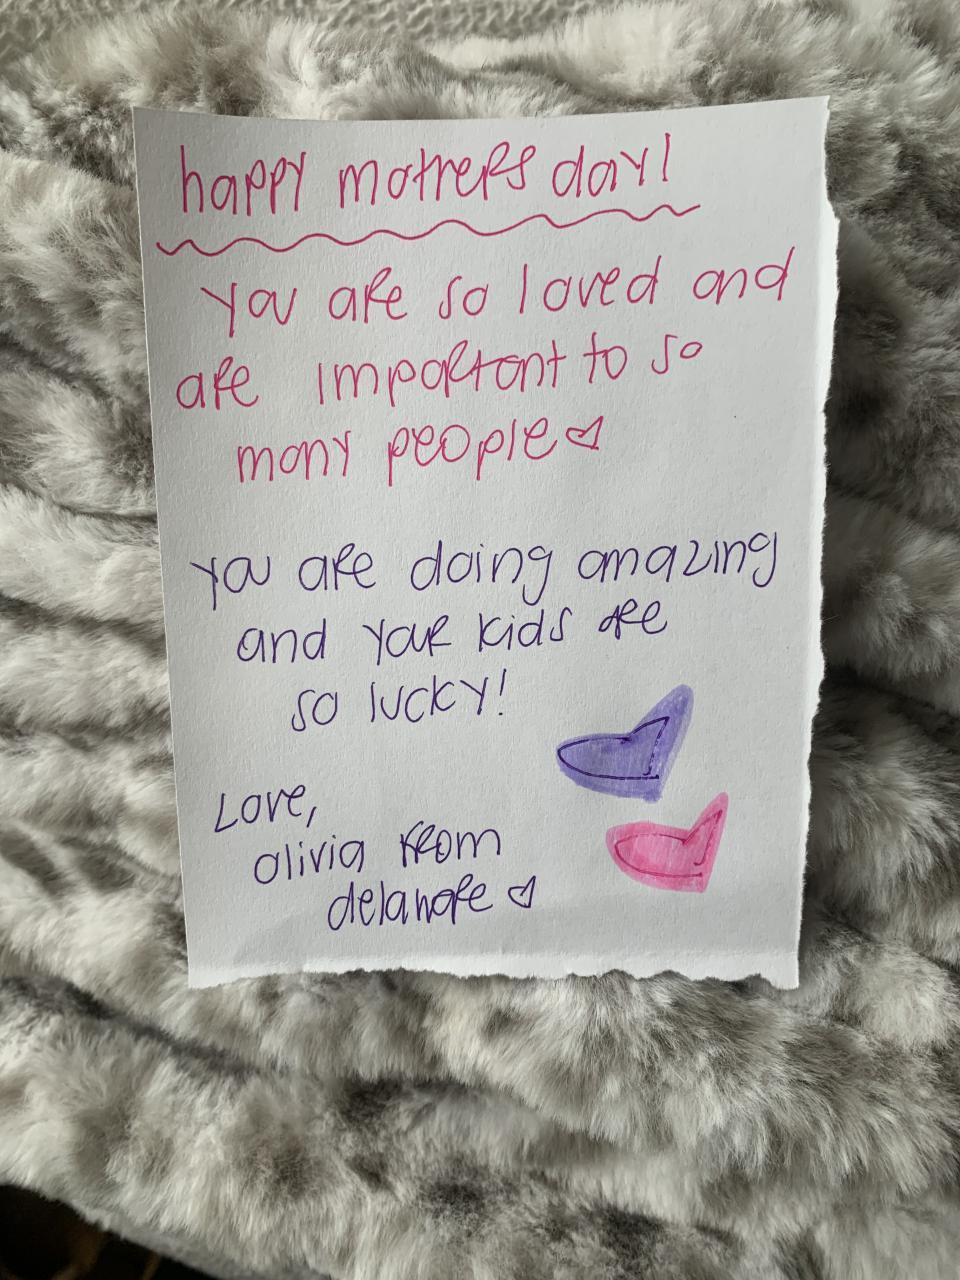 happy mothers day!
You are so loved and
are important to so
many people♡
You are doing amazing
and your kids are
so lucky!
Love,
olivia from
delaware♡